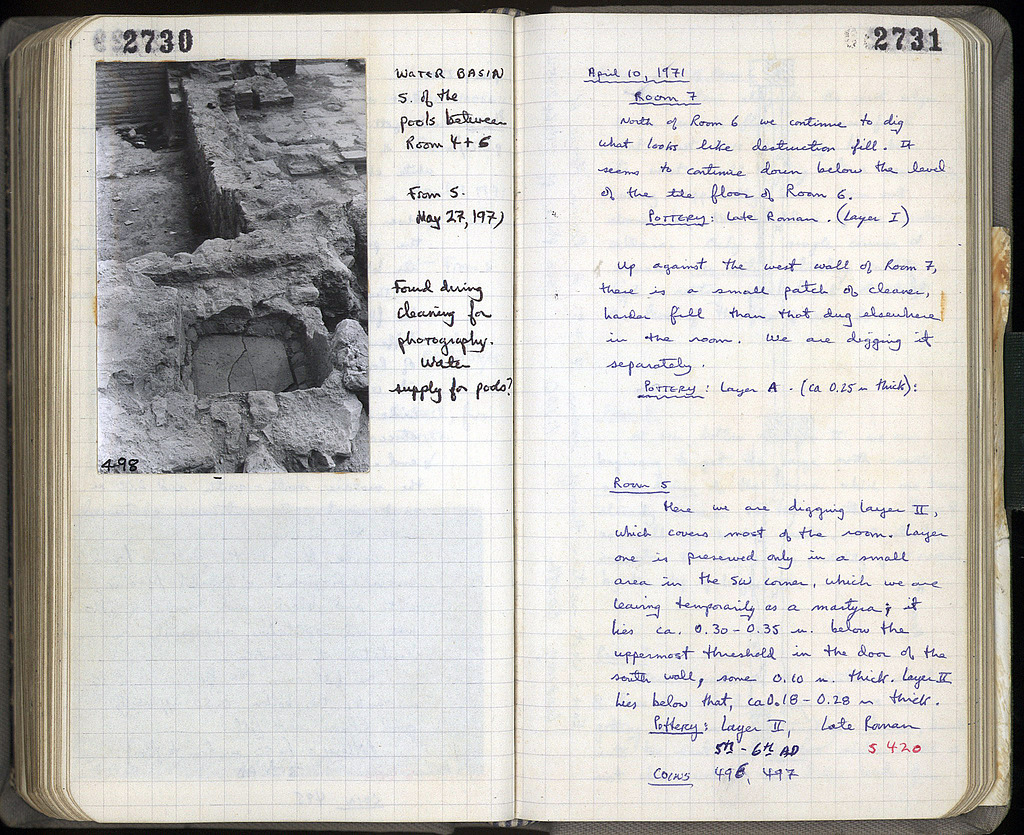 2730
WATER BASIN
S. of the
pools between
Room 4+6
From S.
May 27, 1971
Found during
cleaning for
photography.
Water
supply for pools?
4-98
2731
April 10, 1971
Room 7
North of Room 6 we continue to dig
what looks like destruction fill. It
seems to continue down below the level
of the tile floor of Room 6.
POTTERY: Late Roman. (Layer I)
Up against the west wall of Room 7,
there is a small patch of cleaner,
harder fill than that dug elsewhere
in the room. We are digging it
separately.
POTTERY: Layer A - (ca 0.25 m thick):
Room 5
Here we are digging Layer II,
which covers most of the room. Layer
one is preserved only in a small
area in the SW corner, which we are
leaving temporarily as a martyra; it
lies ca. 0.30-0.35 m. below the
uppermost threshold in the door of the
south wall, some 0.10 m. thick. Layer II
lies below that, ca 0.18-0.28 m thick.
Pottery: Layer II, Late Roman
5th - 6th AD S 420
COINS 496, 497